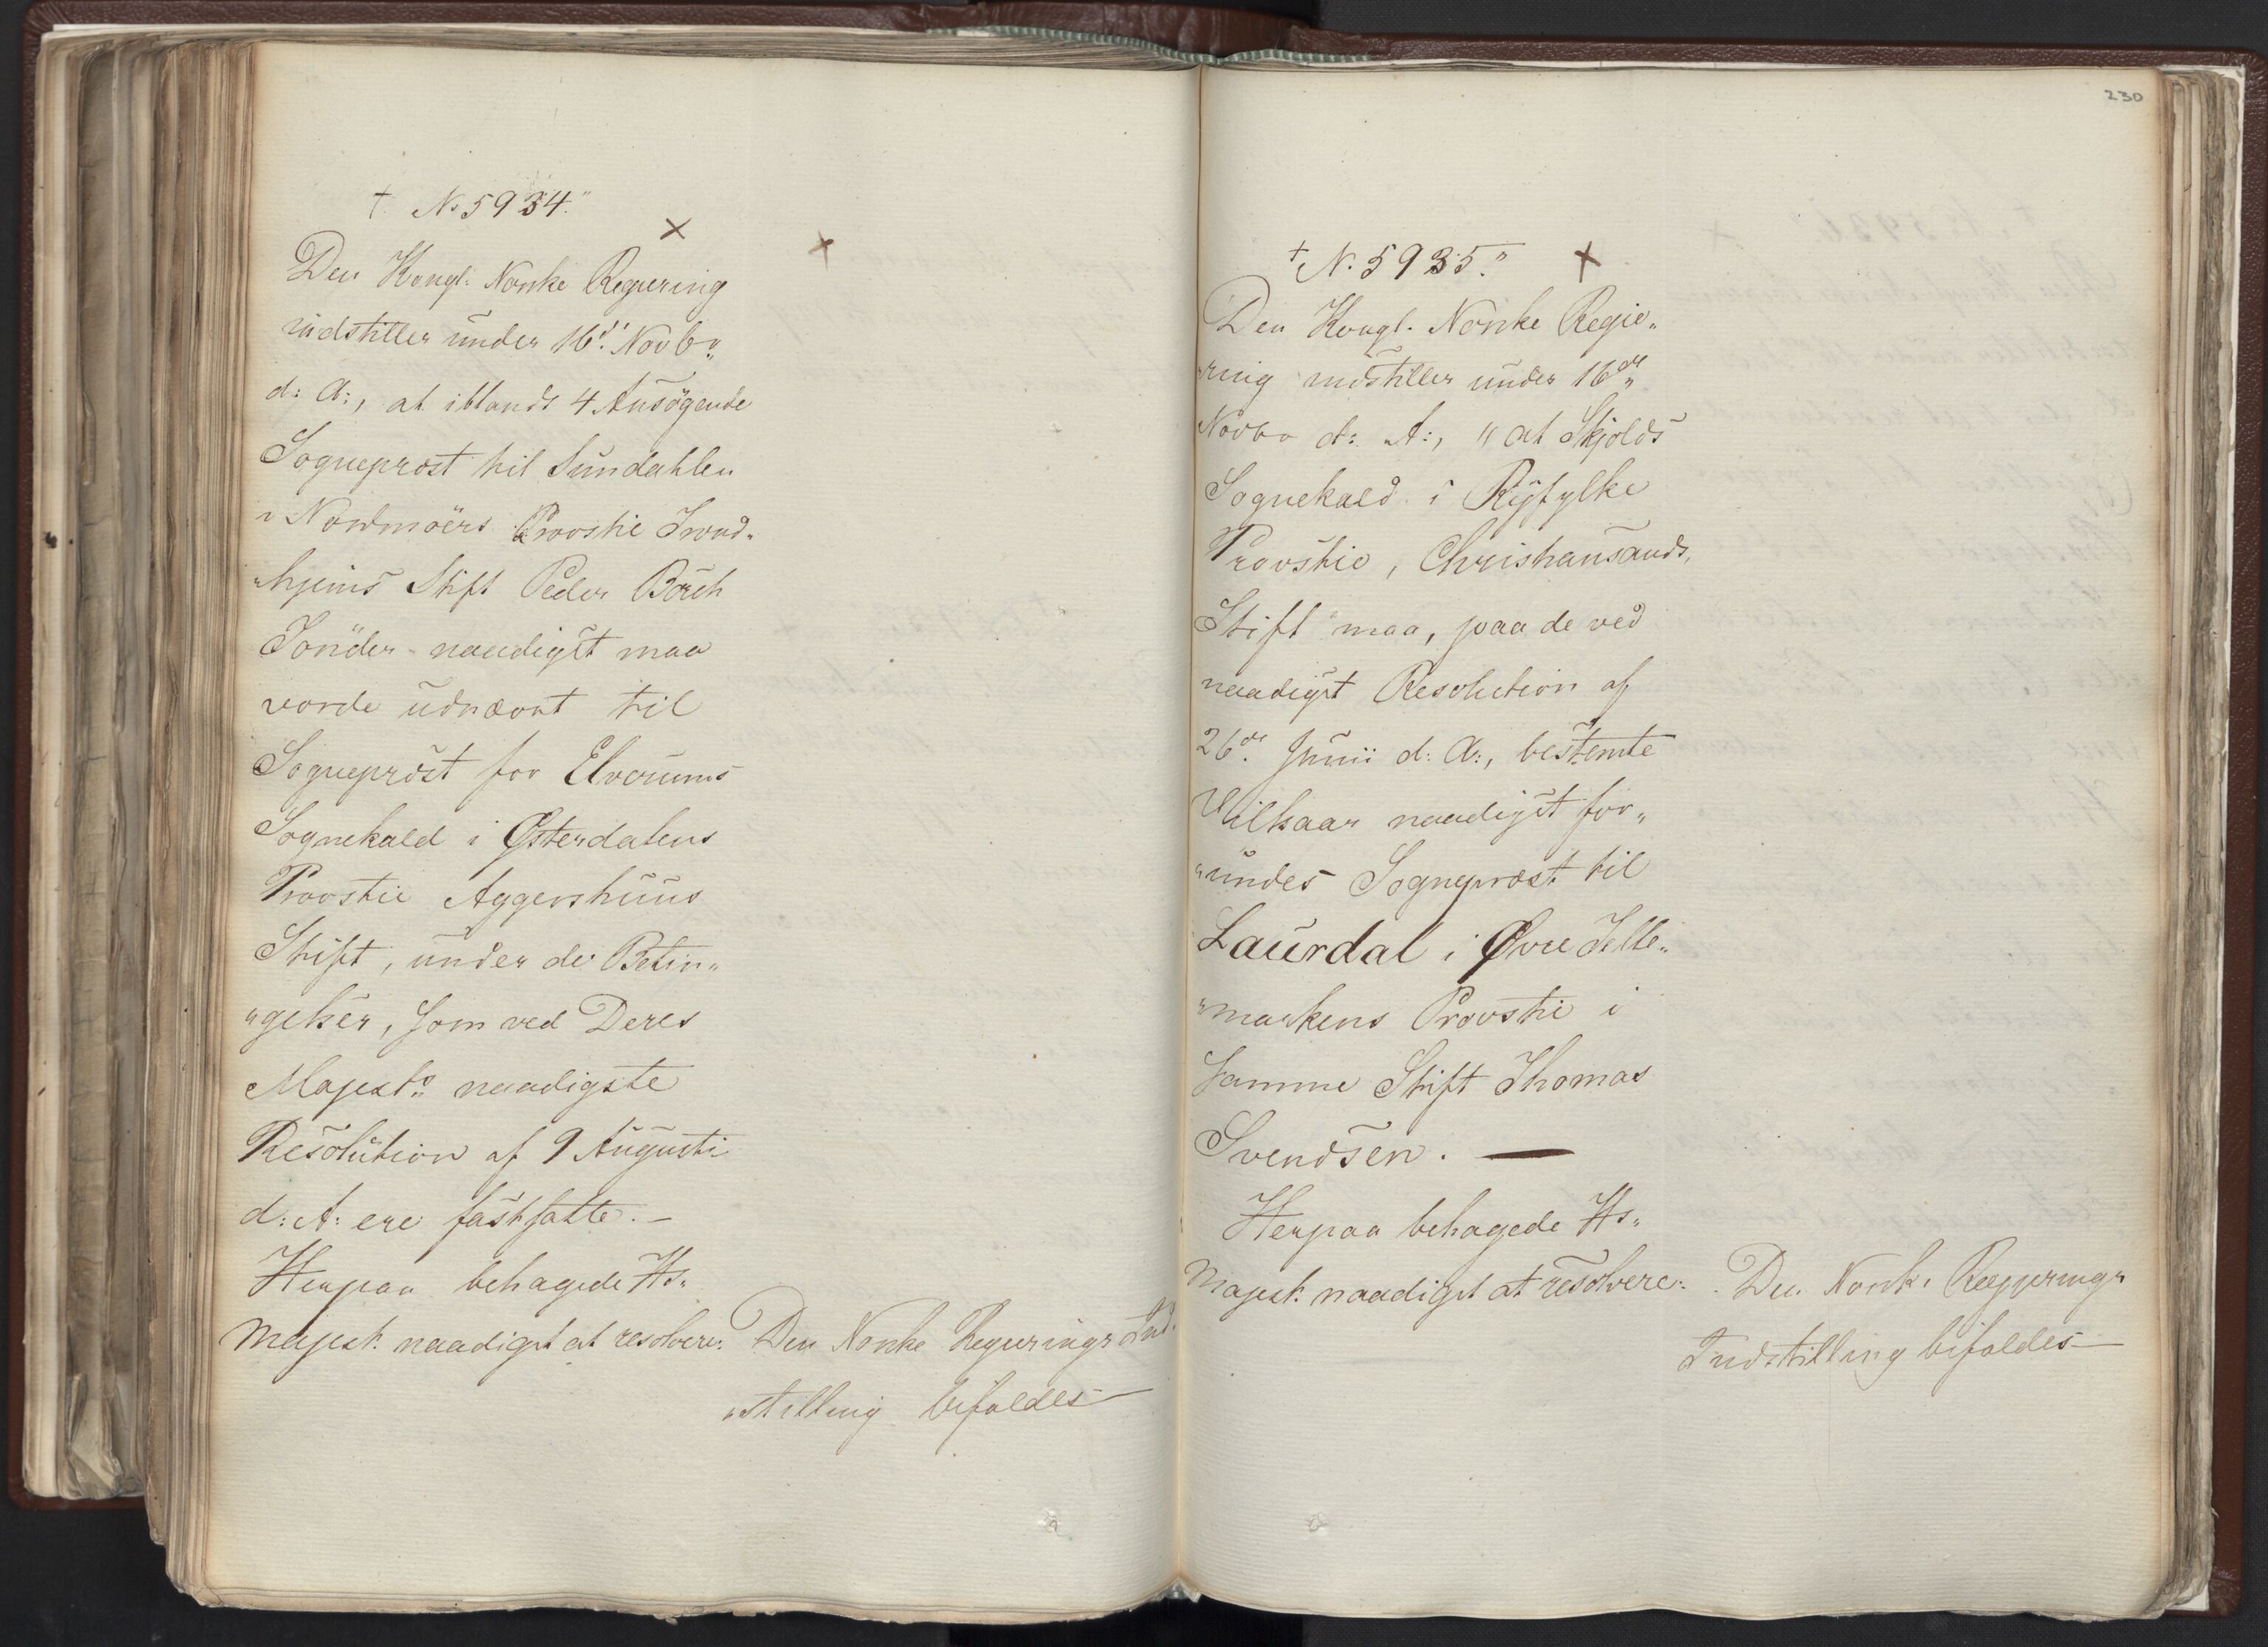 † No 5934."
Den Kongl: Norske Regiering
indstiller under 16d: Novbr
d: A:, at iblandt 4 Ansøgende
Sognepræst til Sundahlen
i Nordmöers Provstie Trond-
"hjems Stift Peder Borch
Tønder naadigst maa
vorde udnævnt til
Sogneprest for Elverums
Sognekald i Østerdalens
Provstie Aggershuus
Stift, under de Betin„
"gelser, som ved Deres
Majests naadigste
Resolution af 9 Augusti
d: A: ere fastsatte. –
Herpaa behagede Hs„
Majest: naadigst at resolvere: Den Norske Regierings Ind„
„stilling bifaldes –
230
† N. 5935."
Den Kongl. Norske Regie„
„ring indstiller under 16de
Novbr d: A:, „ at Skjolds
Sognekald i Ryfylke
Provstie, Christiansands
Stift maa, paa de ved
naadigst Resolution af
26de Junii d: A:, bestemte
Vilkaar naadigst for„
„undes Sogneprest til
Laurdal i Øvre Telle„
„markens Provstie i
samme Stift Thomas
Svendsen. —
Herpaa behagede Hs„
Majest: naadigst at resolvere: Den Norske Regierings
Indstilling bifaldes –